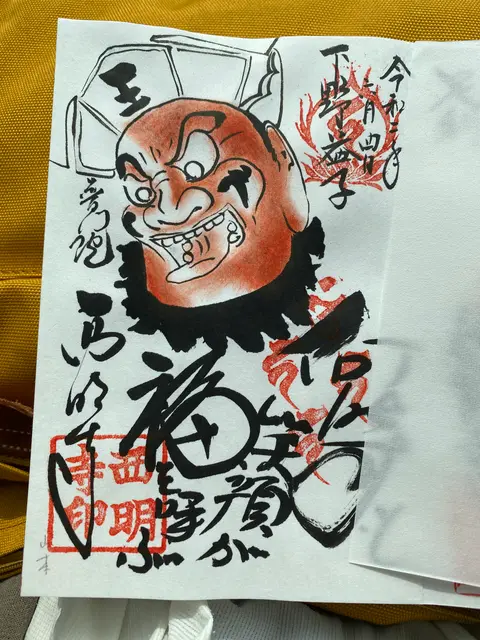 令和
月四日
下野益子
王
笑顔が
福を呼ぶ
普門院
西明寺
西明
寺印